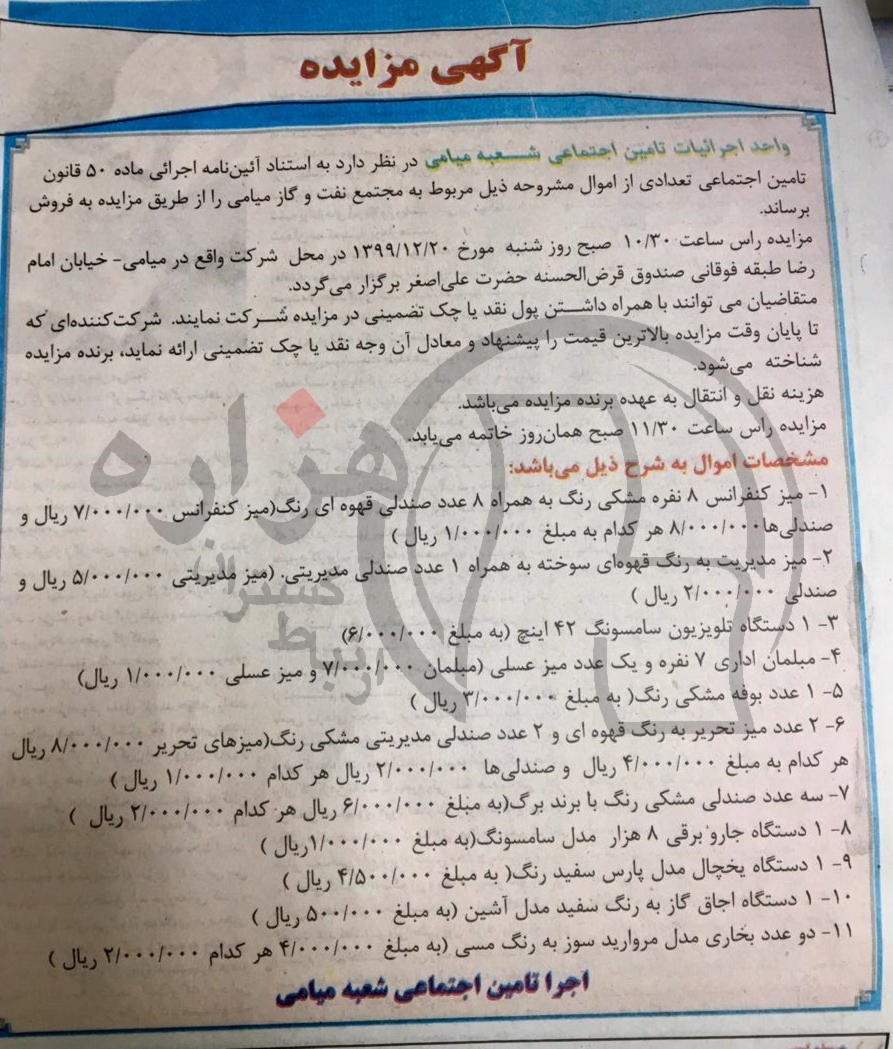 آگهی مزایده
واحد اجرائیات تامین اجتماعی شعبه میامی در نظر دارد به استناد آئین‌نامه اجرائی ماده ۵۰ قانون
تامین اجتماعی تعدادی از اموال مشروحه ذیل مربوط به مجتمع نفت و گاز میامی را از طریق مزایده به فروش
برساند.
مزایده راس ساعت ۱۰/۳۰ صبح روز شنبه مورخ ۱۳۹۹/۱۲/۲۰ در محل شرکت واقع در میامی- خیابان امام
رضا طبقه فوقانی صندوق قرض‌الحسنه حضرت علی‌اصغر برگزار می‌گردد.
متقاضیان می توانند با همراه داشتن پول نقد یا چک تضمینی در مزایده شرکت نمایند. شرکت‌کننده‌ای که
تا پایان وقت مزایده بالاترین قیمت را پیشنهاد و معادل آن وجه نقد یا چک تضمینی ارائه نماید، برنده مزایده
شناخته می‌شود.
هزینه نقل و انتقال به عهده برنده مزایده می‌باشد.
مزایده راس ساعت ۱۱/۳۰ صبح همان‌روز خاتمه می‌یابد.
مشخصات اموال به شرح ذیل می‌باشد:
۱- میز کنفرانس ۸ نفره مشکی رنگ به همراه ۸ عدد صندلی قهوه ای رنگ(میز کنفرانس ۷/۰۰۰/۰۰۰ ریال و
صندلی‌ها ۸/۰۰۰/۰۰۰ هر کدام به مبلغ ۱/۰۰۰/۰۰۰ ریال )
۲- میز مدیریت به رنگ قهوه‌ای سوخته به همراه ۱ عدد صندلی مدیریتی. (میز مدیریتی ۵/۰۰۰/۰۰۰ ریال و
صندلی ۲/۰۰۰/۰۰۰ ریال )
۳- ۱ دستگاه تلویزیون سامسونگ ۴۲ اینچ (به مبلغ ۶/۰۰۰/۰۰۰)
۴- مبلمان اداری ۷ نفره و یک عدد میز عسلی (مبلمان ۷/۰۰۰/۰۰۰ و میز عسلی ۱/۰۰۰/۰۰۰ ریال)
۵- ۱ عدد بوفه مشکی رنگ( به مبلغ ۳/۰۰۰/۰۰۰ ریال )
۶- ۲ عدد میز تحریر به رنگ قهوه ای و ۲ عدد صندلی مدیریتی مشکی رنگ(میزهای تحریر ۸/۰۰۰/۰۰۰ ریال
هر کدام به مبلغ ۴/۰۰۰/۰۰۰ ریال و صندلی‌ها ۲/۰۰۰/۰۰۰ ریال هر کدام ۱/۰۰۰/۰۰۰ ریال )
۷- سه عدد صندلی مشکی رنگ با برند برگ(به مبلغ ۶/۰۰۰/۰۰۰ ریال هر کدام ۲/۰۰۰/۰۰۰ ریال )
۸- ۱ دستگاه جارو برقی ۸ هزار مدل سامسونگ(به مبلغ ۱/۰۰۰/۰۰۰ریال )
۹- ۱ دستگاه یخچال مدل پارس سفید رنگ( به مبلغ ۴/۵۰۰/۰۰۰ ریال )
۱۰- ۱ دستگاه اجاق گاز به رنگ سفید مدل آشین (به مبلغ ۵۰۰/۰۰۰ ریال )
۱۱- دو عدد بخاری مدل مروارید سوز به رنگ مسی (به مبلغ ۴/۰۰۰/۰۰۰ هر کدام ۲/۰۰۰/۰۰۰ ریال )
اجرا تامین اجتماعی شعبه میامی
هزاره
ارتباط
گستران